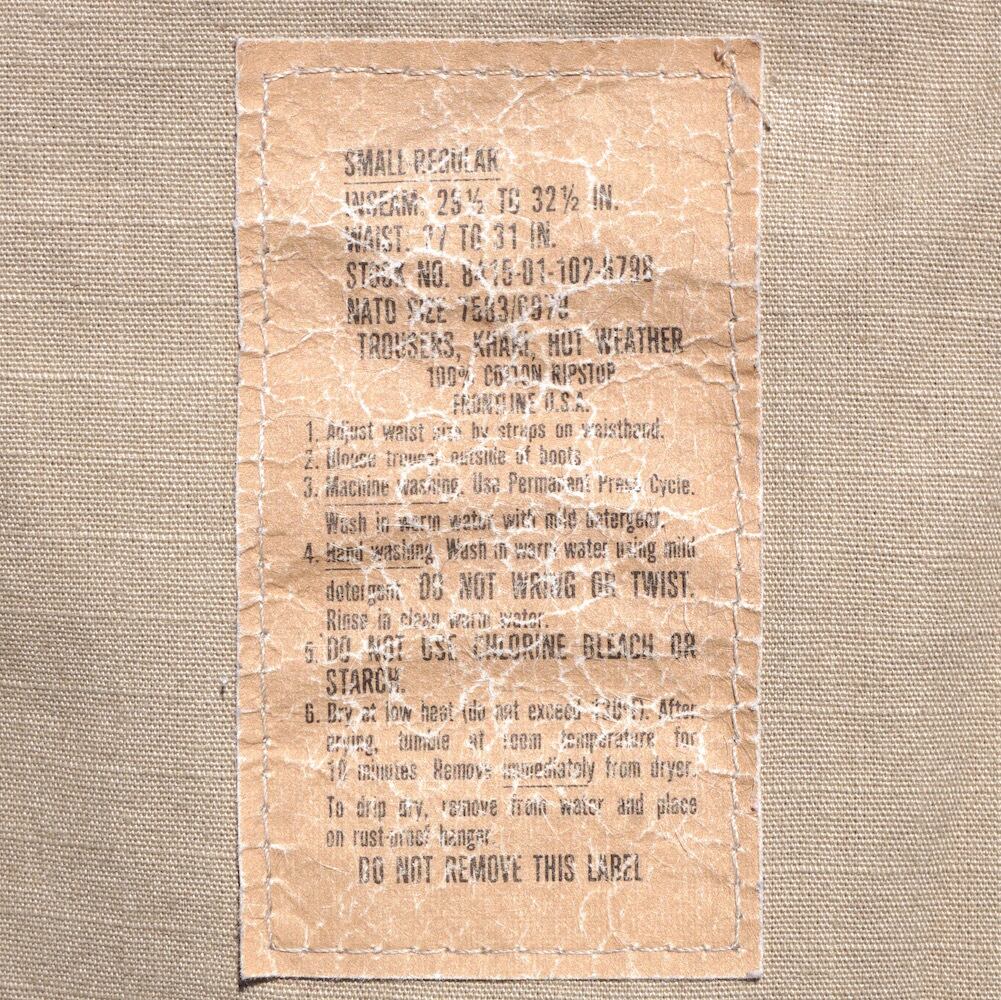 SMALL-REGULAR
INSEAM: 29½ TO 32½ IN.
WAIST: 27 TO 31 IN.
STOCK NO. 8415-01-102-6798
NATO SIZE 7583/6979
TROUSERS, KHAKI, HOT WEATHER
100% COTTON RIPSTOP
FRONTLINE U.S.A.
1. Adjust waist size by straps on waistband.
2. Blouse trouser outside of boots
3. Machine washing. Use Permanent Press Cycle.
Wash in warm water with mild detergent.
4. Hand washing. Wash in warm water using mild
detergent. DO NOT WRING OR TWIST.
Rinse in clean warm water.
5. DO NOT USE CHLORINE BLEACH OR
STARCH.
6. Dry at low heat (do not exceed 130°F). After
drying, tumble at room temperature for
10 minutes. Remove immediately from dryer.
To drip dry, remove from water and place
on rust-proof hanger.
DO NOT REMOVE THIS LABEL